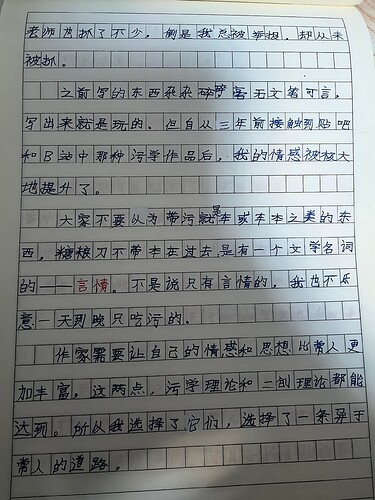 老师也抓了不少，倒是我总被举报，却从未
被抓。
之前写的东西杂杂碎碎毫无文笔可言，
写出来就是玩的。但自从三年前接触到贴吧
和B站中那种污学作品后，我的情感被极大
地提升了。
大家不要认为带污就是本或本本之类的东
西，糖粮刀不带本在过去是有一个文学名词
的——言情。不是说只有言情的，我也不乐
意一天到晚只吃污的。
作家需要让自己的情感和思想比常人更
加丰富，这两点，污学理论和二创理论都能
达到。所以我选择了它们，选择了一条异于
常人的道路。